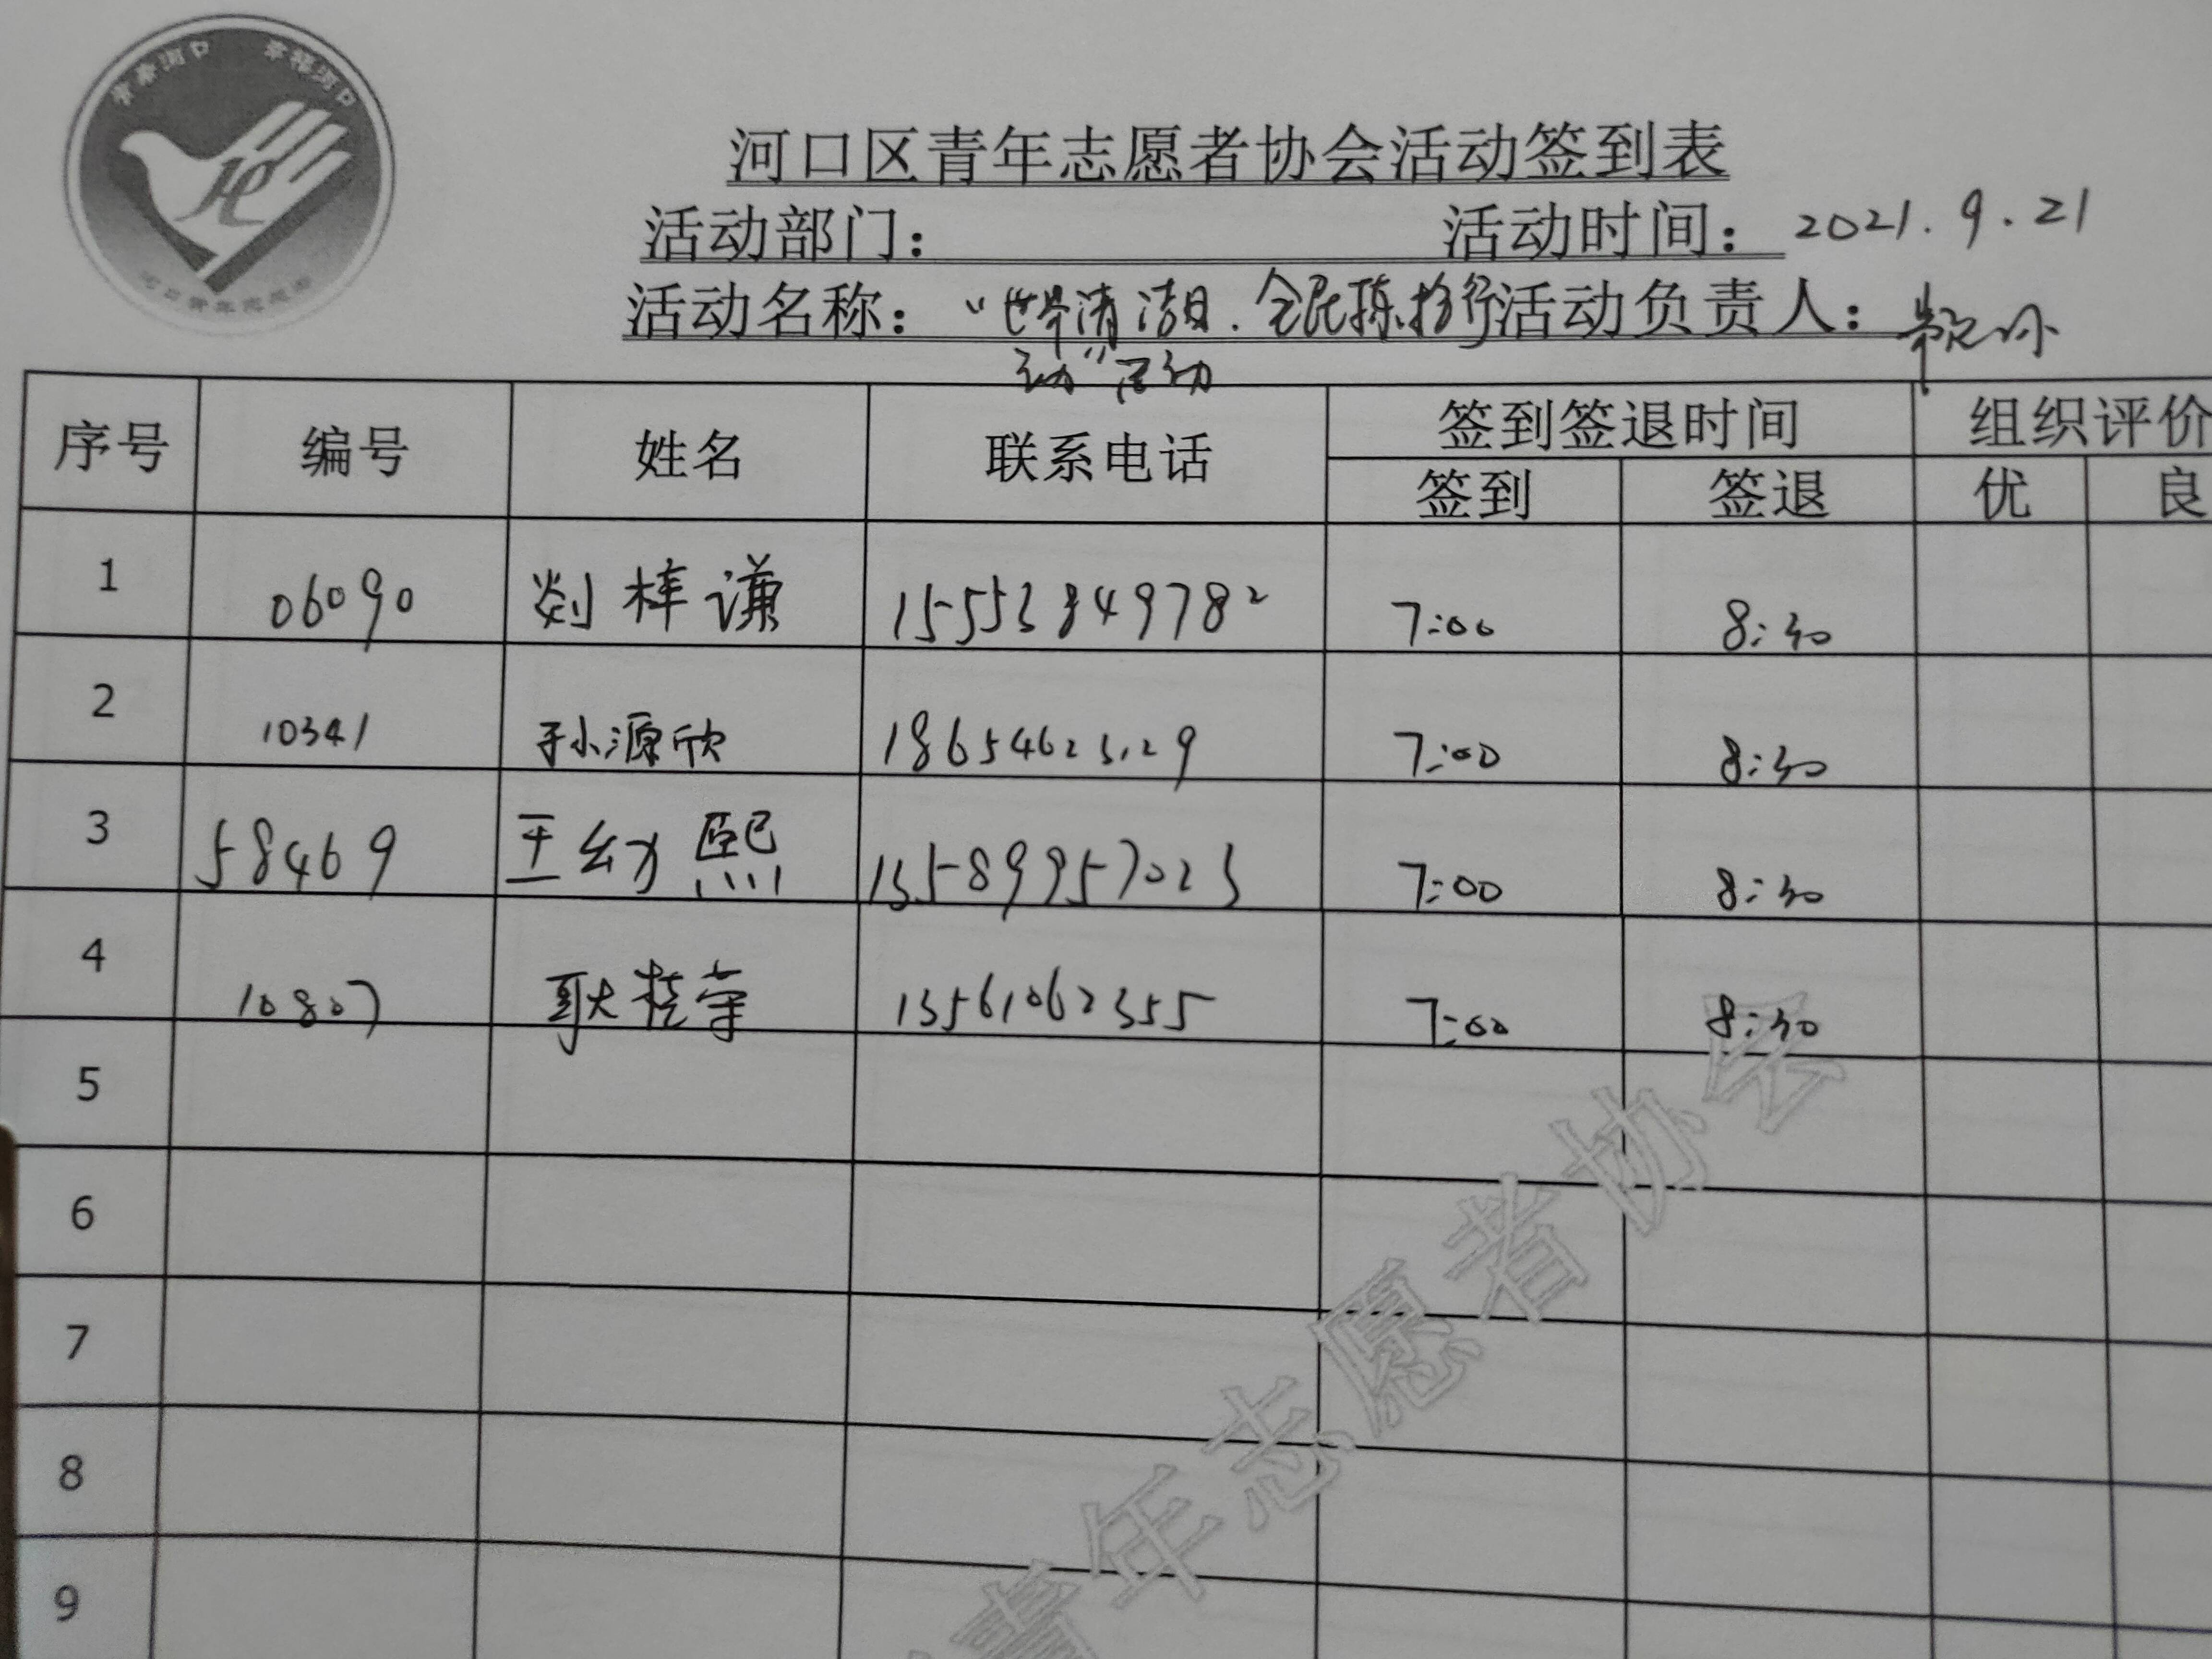 青春河口 幸福河口
河口区青年志愿者协会活动签到表
活动部门： 活动时间：2021.9.21
活动名称：“世界清洁日.全民捡拾行 活动负责人：
动”活动
序号 编号 姓名 联系电话 签到签退时间 组织评价
签到 签退 优 良
1 06090 刘梓谦 15553849782 7:00 8:30
2 10341 孙源欣 18654623129 7:00 8:30
3 58469 王幼熙 13589957023 7:00 8:30
4 10807 耿桂荣 13561062355 7:00 8:30
5
6
7
8
9
青年志愿者协会